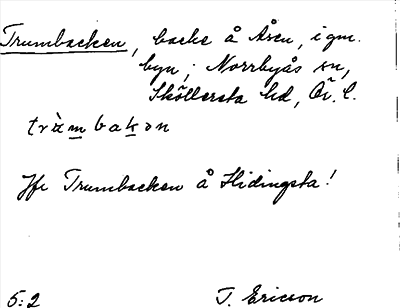 Trumbacken, backe å Åsen, i gm.
byn; Norrbyås sn,
Sköllersta hd, Ör. l.
trùmbakən
Jfr Trumbacken å Hidingsta!
5:2 T. Ericson